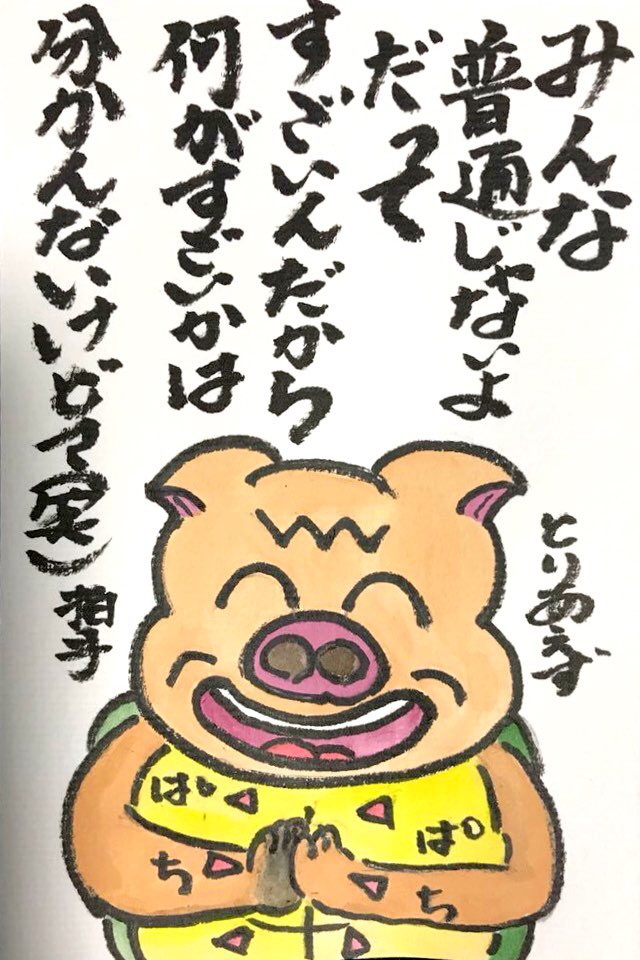 みんな
普通じゃないよ
だって
すごいんだから
何がすごいかは
分かんないけどマ(笑)
とりあえず
拍手
ぱ
ち
ぱ
ち